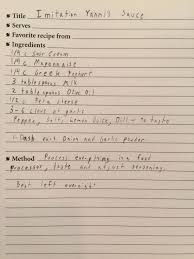 Title Imitation Yanni's Sauce
Serves
Favorite recipe from
Ingredients
1/4 c Sour Cream
1/4 c Mayonnaise
1/4 c Greek Yoghurt
3 tablespoons Milk
2 table spoons Olive Oil
1/2 c Feta cheese
5-6 cloves of garlic
Pepper, Salt, Lemon Juice, Dill - to taste
1 Dash each Onion and Garlic powder
Method Process everything in a food
processor, taste and adjust seasoning.
Best left overnight